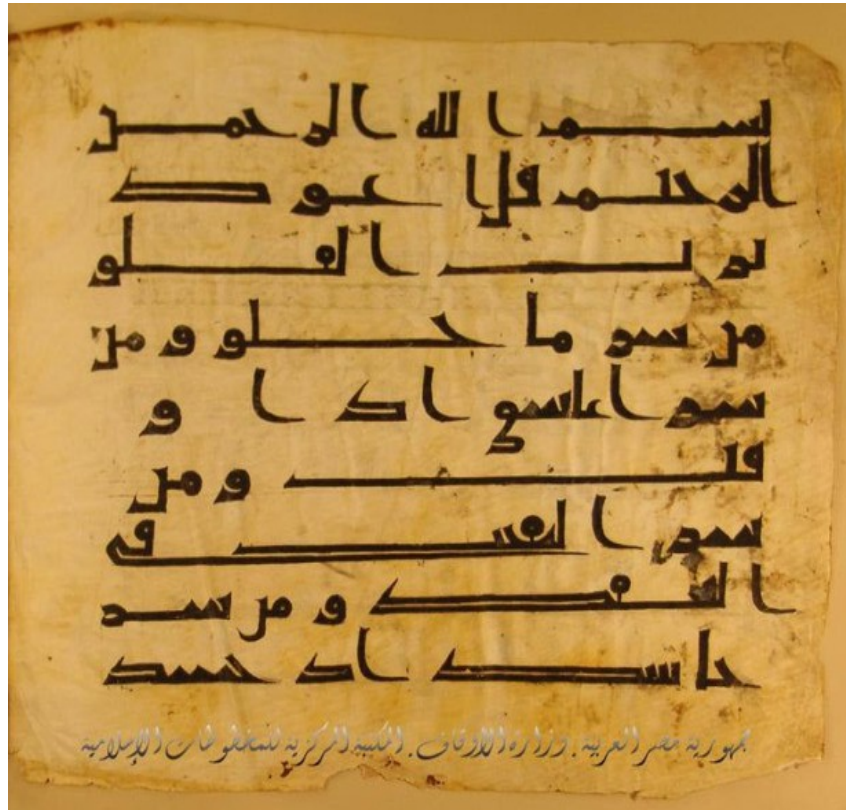 بسم الله الرحمن
الرحيم قل اعوذ
برب الفلق
من شر ما خلق ومن
شر غاسق اذا و
قب ومن
شر النفثت في
العقد ومن شر
حاسد اذا حسد
جمهورية مصر العربية . وزارة الأوقاف . المكتبة المركزية للمخطوطات الإسلامية